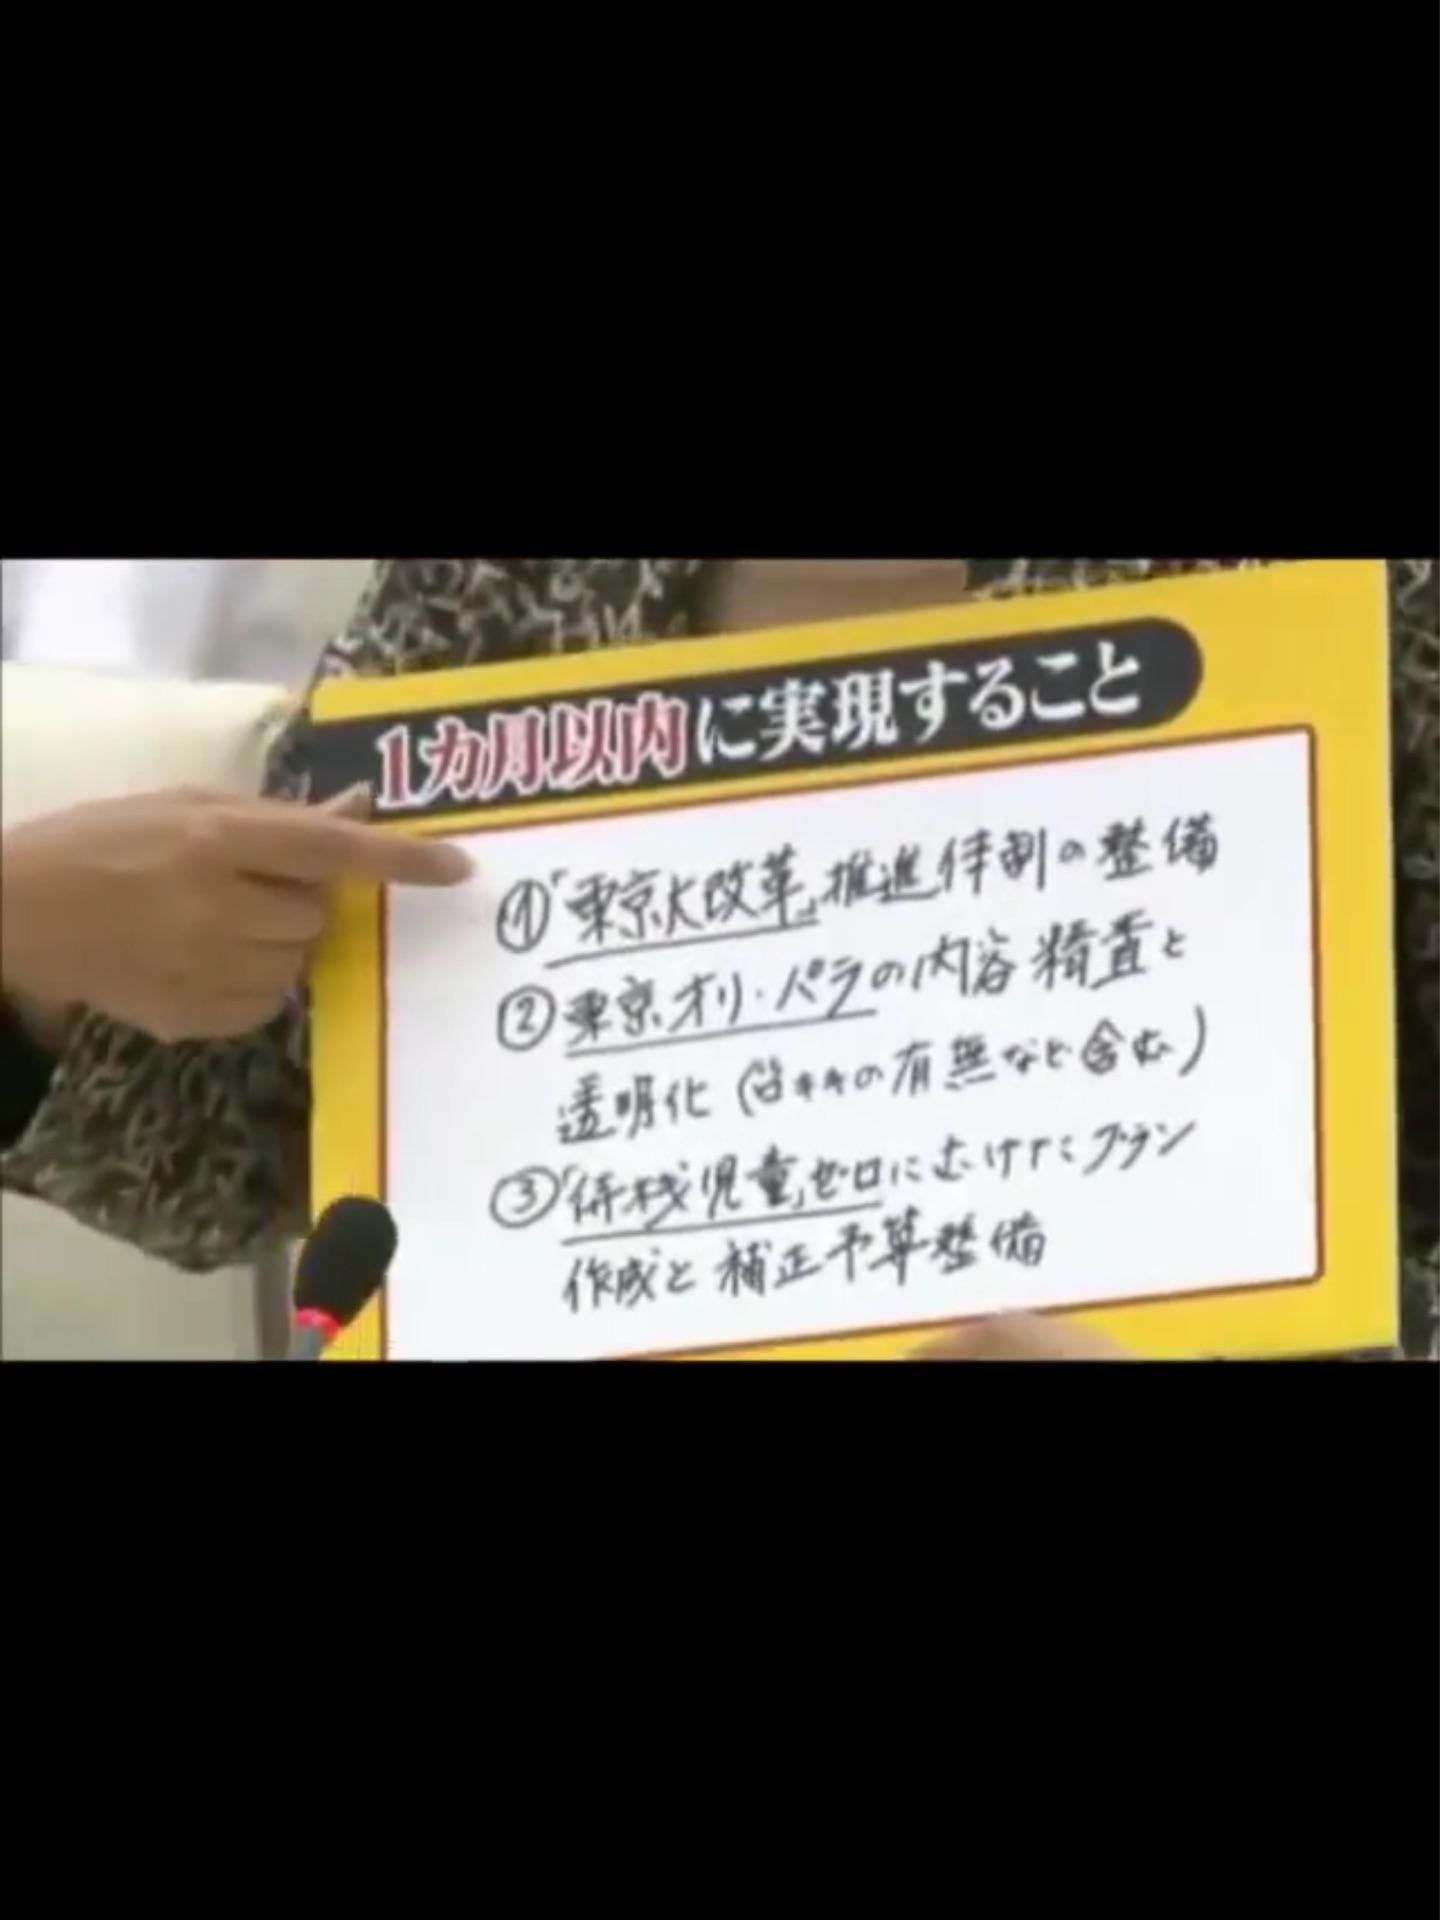 1カ月以内に実現すること
①「東京大改革」推進体制の整備
②東京オリ・パラの内容精査と
透明化(の有無など含む)
③「待機児童」ゼロにむけたプラン
作成と補正予算整備